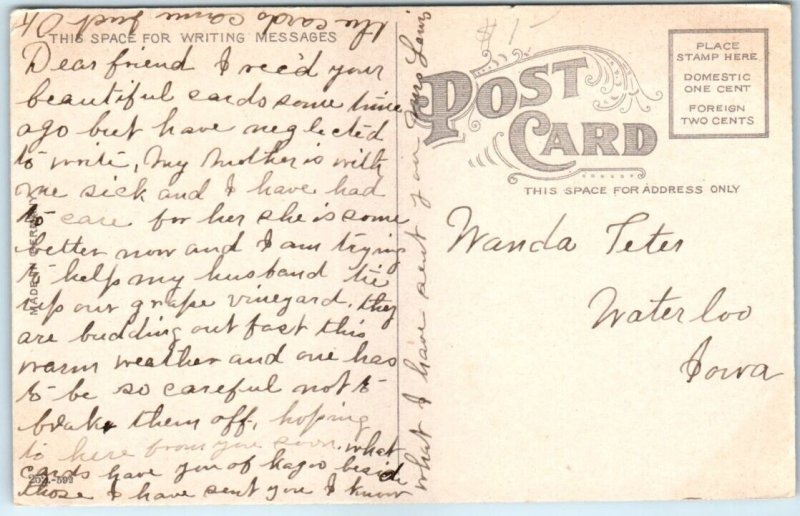 THIS SPACE FOR WRITING MESSAGES
Dear friend I rec'd your
beautiful cards some time
ago but have neglected
to write, my mother is with
me sick and I have had
to care for her she is some
better now and I am trying
to help my husband tie
up our grape vineyard. they
are budding out fast this
warm weather and one has
to be so careful not to
brake them off, hoping
to here from you soon. what
cards have you of kazoo beside
those I have sent you I know
what I have sent you
the cards came just
MADE IN GERMANY
252.-599
$1-
POST CARD
THIS SPACE FOR ADDRESS ONLY
PLACE
STAMP HERE
DOMESTIC
ONE CENT
FOREIGN
TWO CENTS
Wanda Teter
Waterloo
Iowa